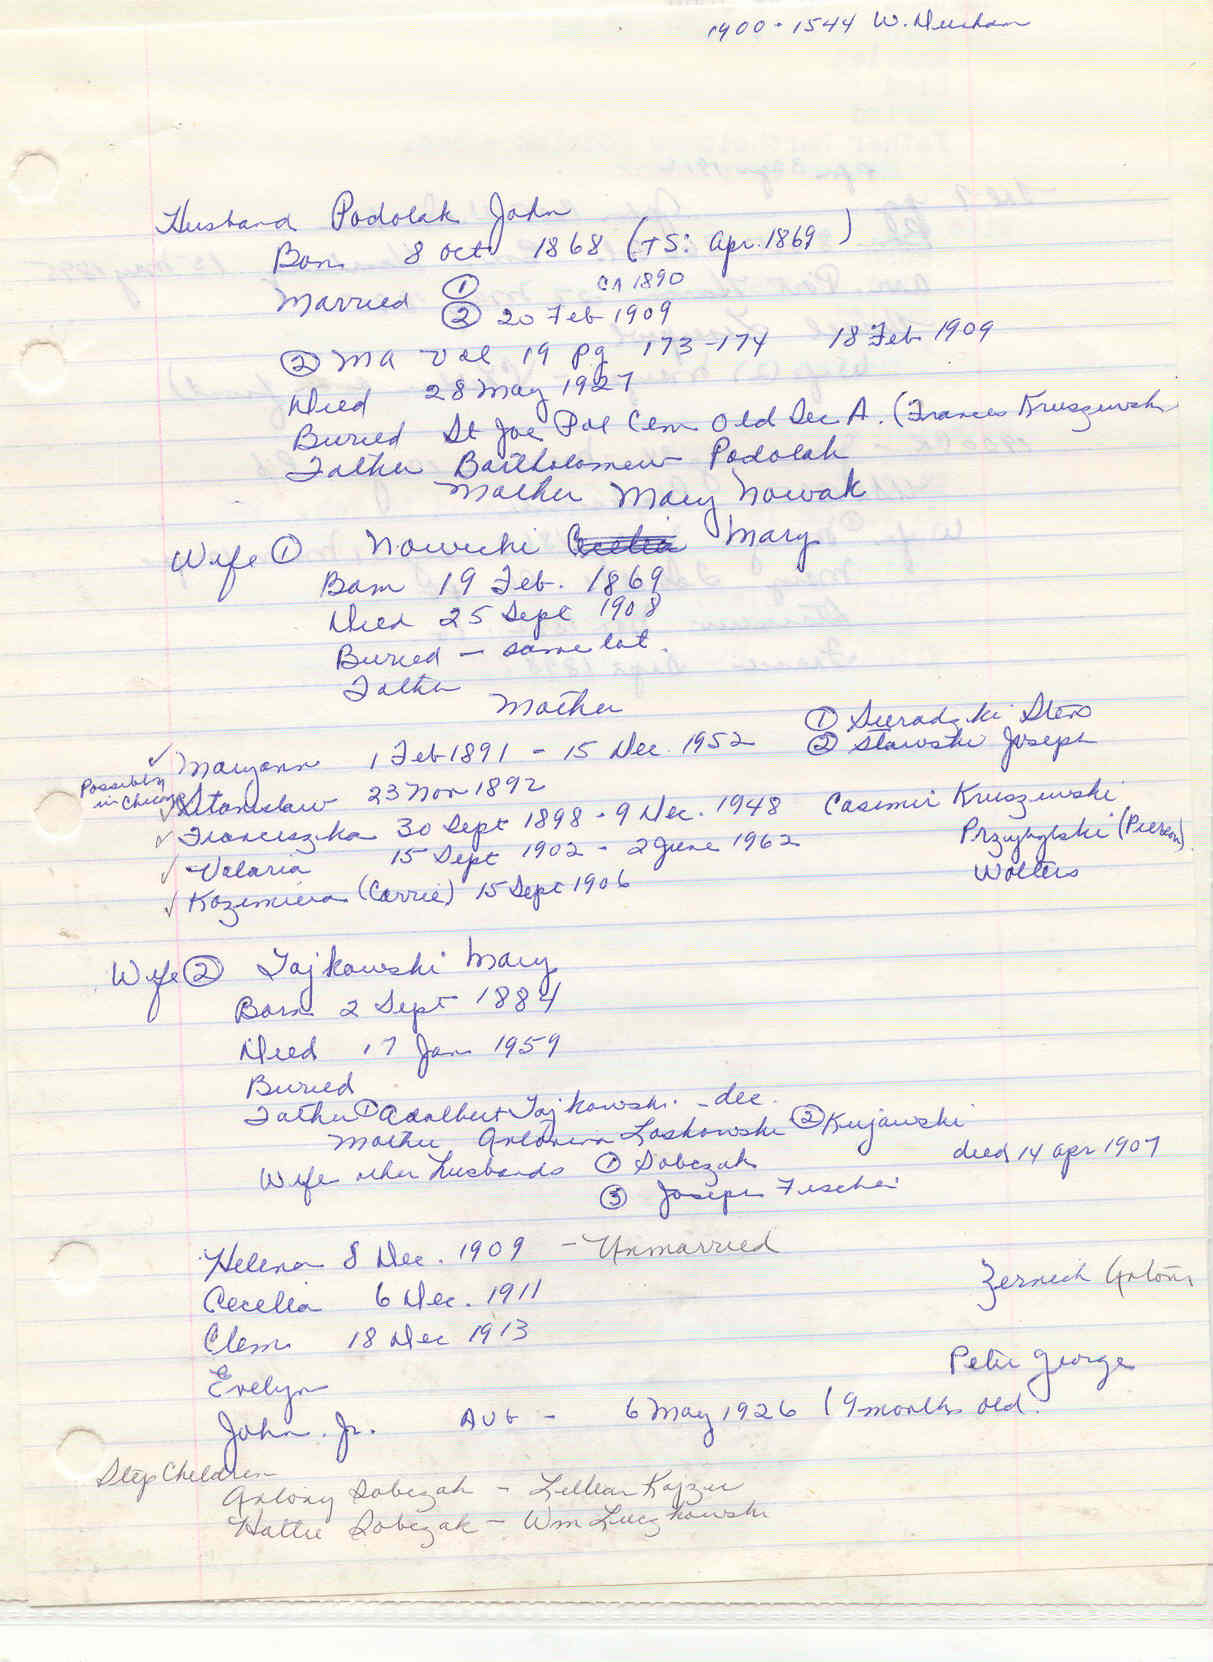 1900 - 1544 W.
Husband Podolak John
Born 8 Oct 1868 (TS: Apr. 1869)
Married ① ca 1890
② 20 Feb 1909
② MA Vol 19 pg 173-174 18 Feb 1909
Died 28 May 1927
Buried St Joe Pol Cem Old Sec A. (Frances Kruszewski
Father Bartholomew Podolak
Mother Mary Nowak
Wife ① Nowicki Cecelia Mary
Born 19 Feb. 1869
Died 25 Sept 1908
Buried - same lot.
Father
Mother
① Sieradzki Stan
Maryann 1 Feb 1891 - 15 Dec. 1952 ② Stawski Joseph
Possibly in Chicago
Stanislaw 23 Nov 1892
Franciszka 30 Sept 1898 - 9 Dec. 1948 Casimir Kruszewski
Valaria 15 Sept 1902 - 2 June 1962 Przybylski (Pierson).
Kazimiera (Carrie) 15 Sept 1906 Wolters
Wife ② Tajkowski Mary
Born 2 Sept 1884
Died 17 Jan 1959
Buried
Father ① Adalbert Tajkowski - dec.
Mother Antonina Laskowski ② Kujawski
Wife other husbands ① Sobczak died 14 Apr 1907
③ Joseph Fischer
Helena 8 Dec. 1909 - Unmarried
Cecelia 6 Dec. 1911 Antoni
Clem 18 Dec 1913
Evelyn Peter George
John. Jr. AUG - 6 May 1926 (9 months old.
Step Children
Antony Sobczak - Lillian
Hattie Sobczak - Wm Luczkowski